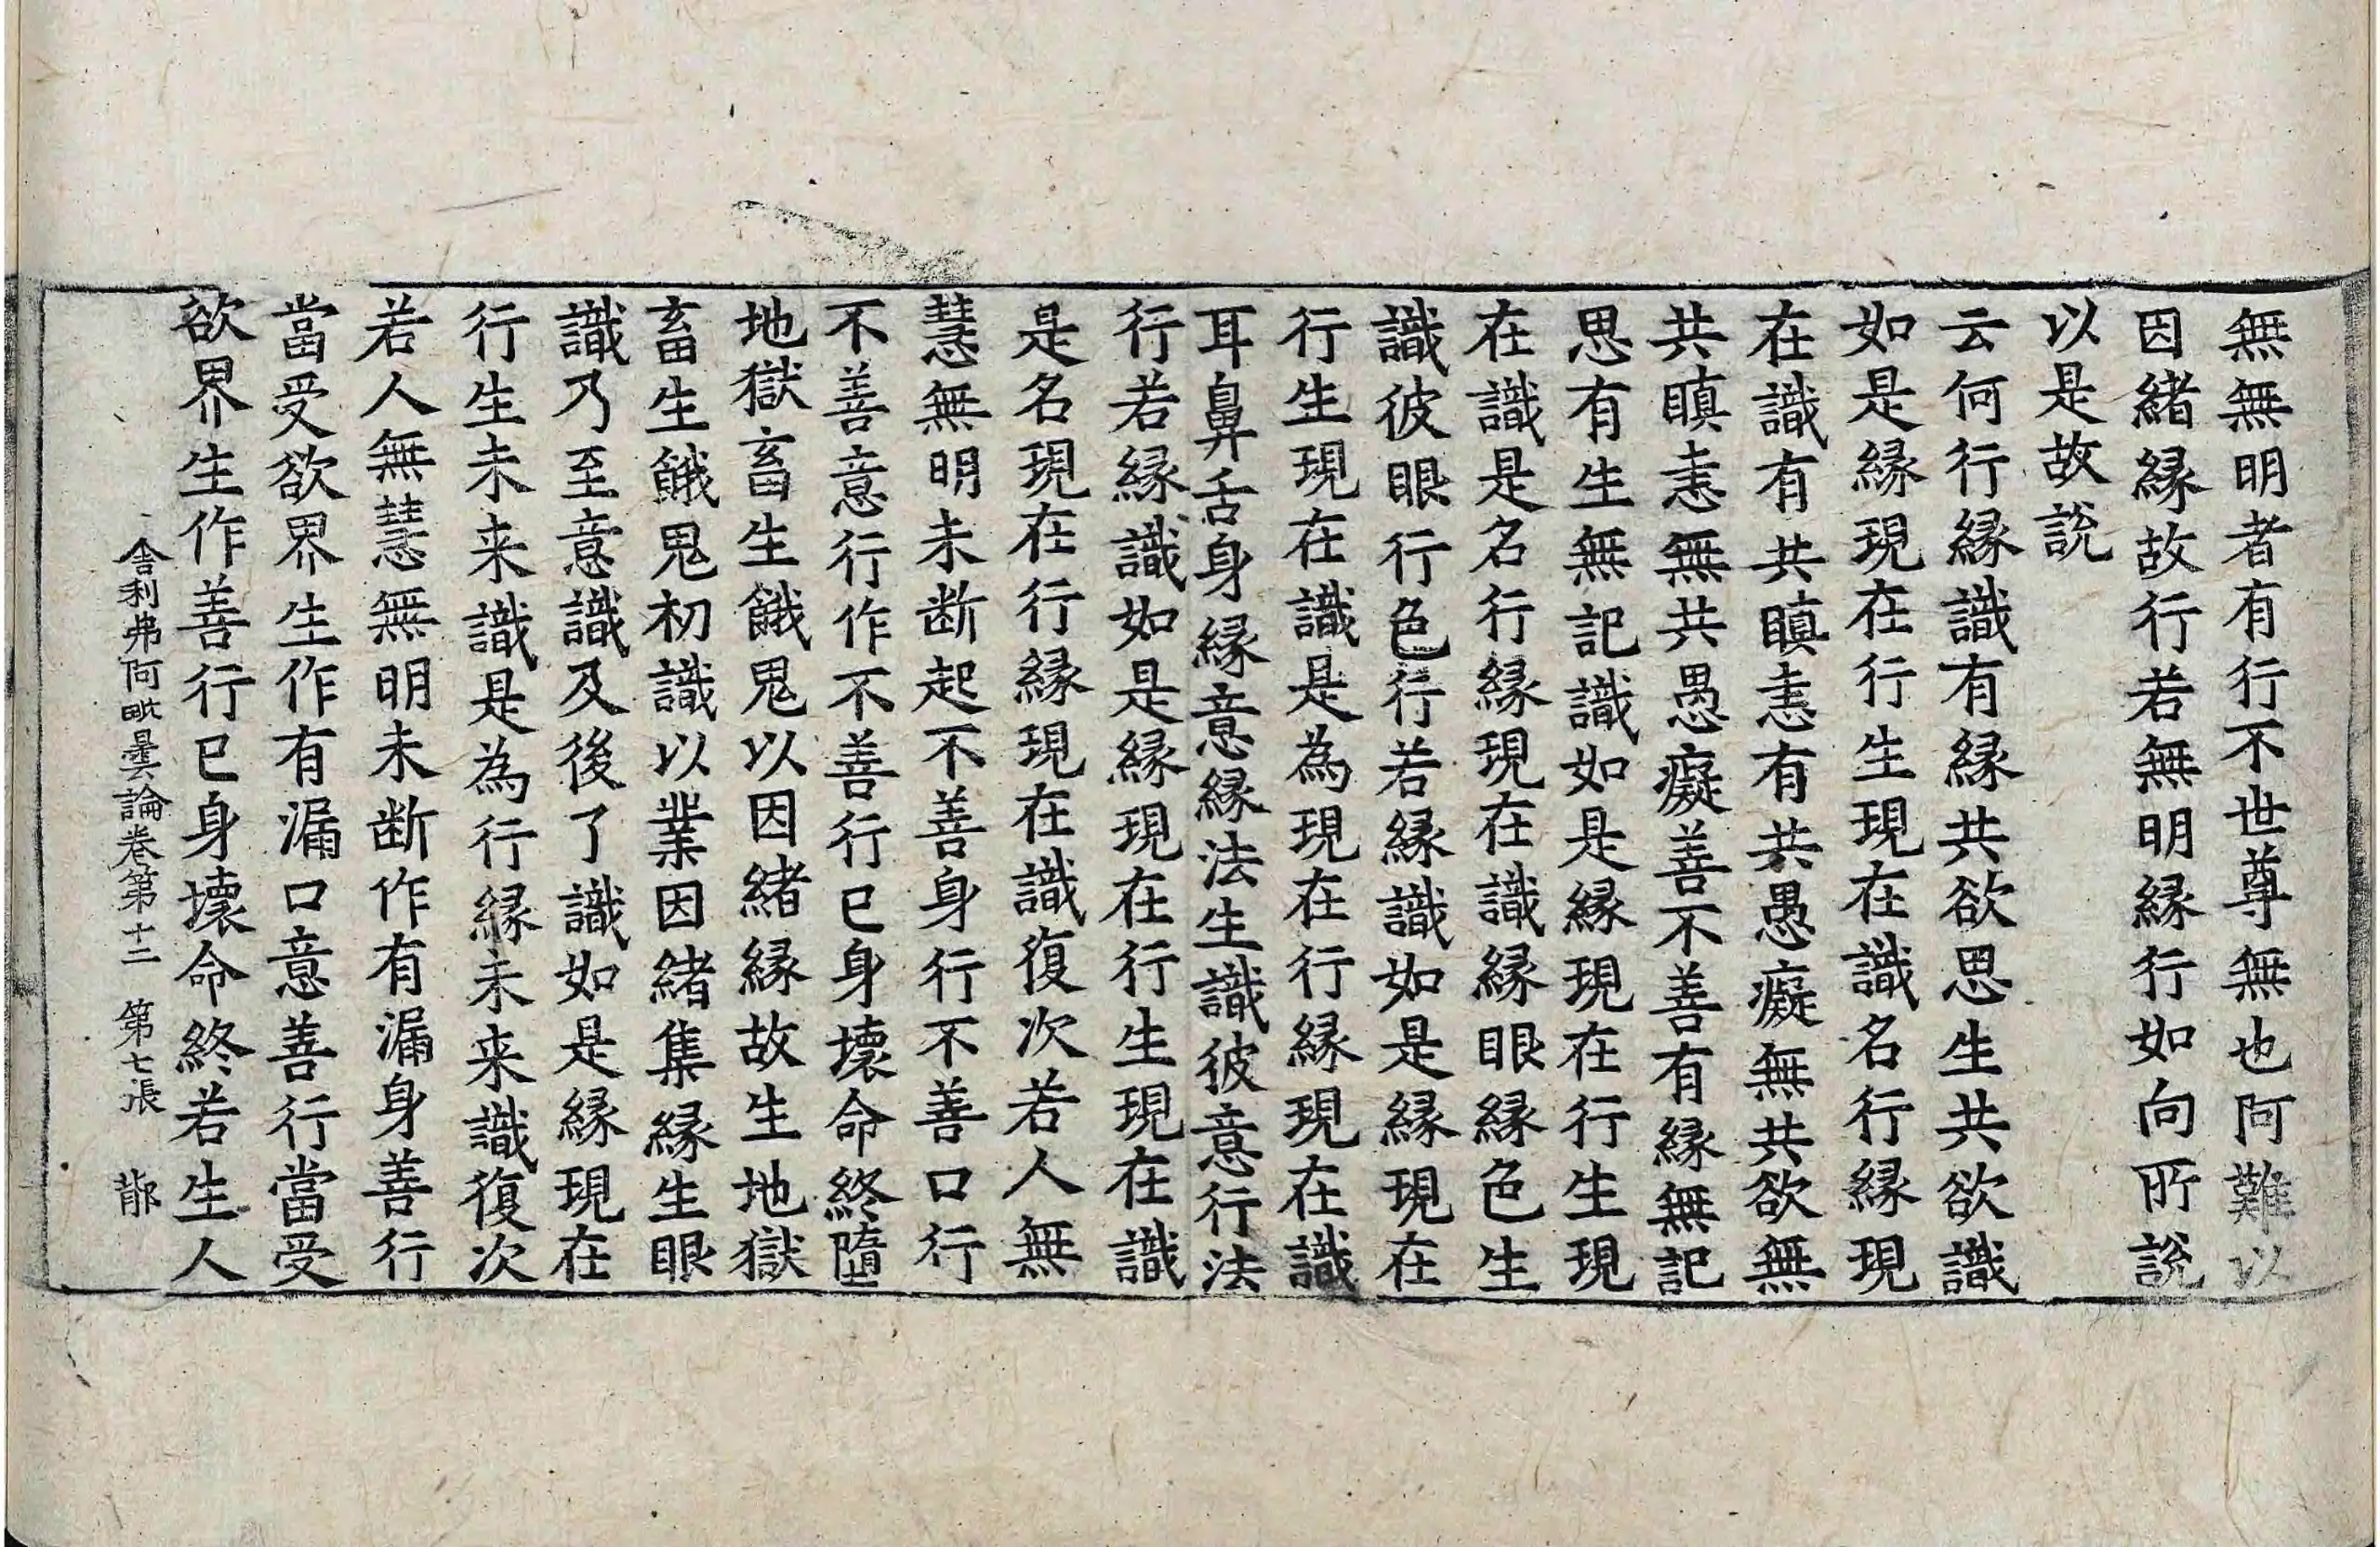 無無明者有行不世尊無也阿難以
因緒縁故行若無明縁行如向所說
以是故說
云何行縁識有縁共欲思生共欲識
如是縁現在行生現在識名行縁現
在識有共瞋恚有共愚癡無共欲無
共瞋恚無共愚癡善不善有縁無記
思有生無記識如是縁現在行生現
在識是名行縁現在識縁眼縁色生
識彼眼行色行若縁識如是縁現在
行生現在識是為現在行縁現在識
耳鼻舌身縁意縁法生識彼意行法
行若縁識如是縁現在行生現在識
是名現在行縁現在識復次若人無
慧無明未断起不善身行不善口行
不善意行作不善行已身壞命終墮
地獄畜生餓鬼以因緒縁故生地獄
畜生餓鬼初識以業因緒集縁生眼
識乃至意識及後了識如是縁現在
行生未来識是為行縁未来識復次
若人無慧無明未断作有漏身善行
當受欲界生作有漏口意善行當受
欲界生作善行已身壞命終若生人
舎利弗阿毗曇論卷第十二　第七張